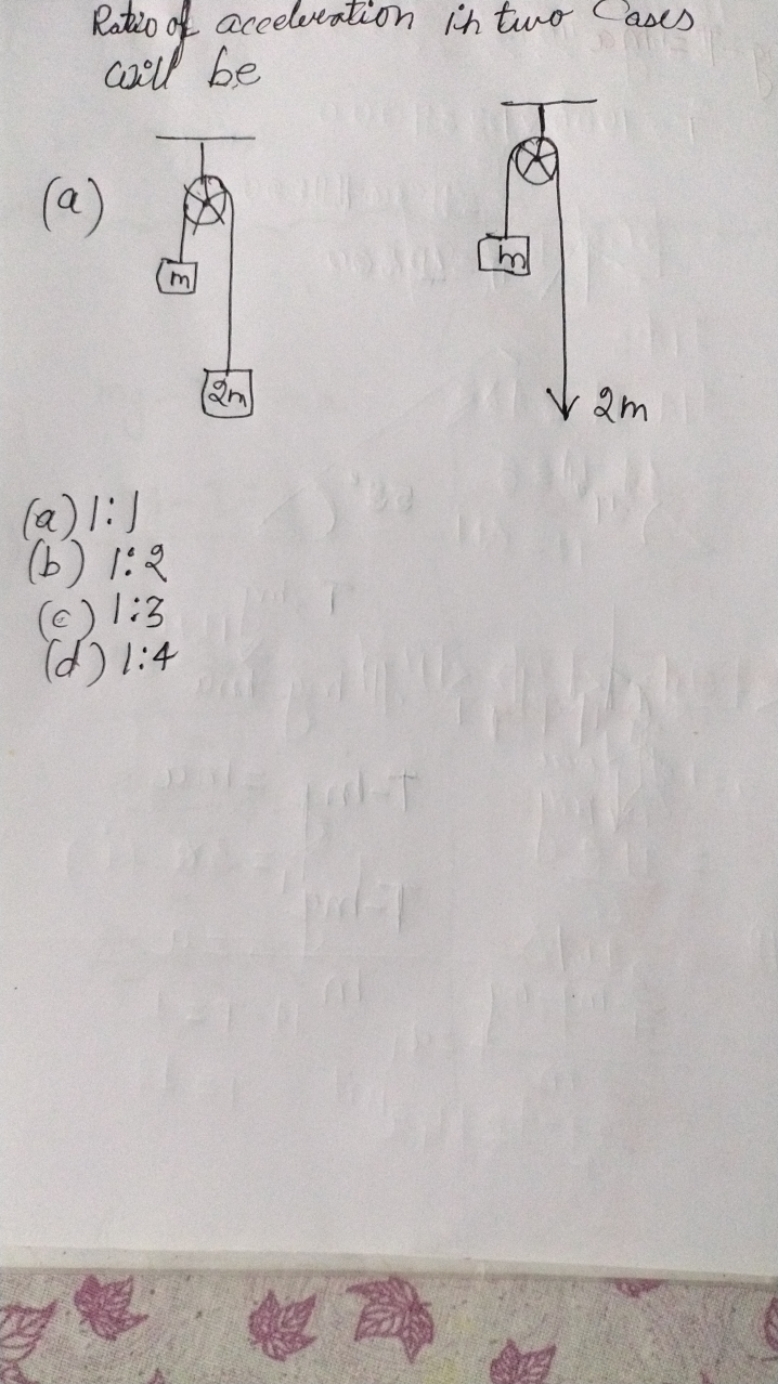 Ratio of acceleration in two Cases
will be
(a)
m
2m
m
2m
(a) 1:1
(b) 1:2
(c) 1:3
(d) 1:4